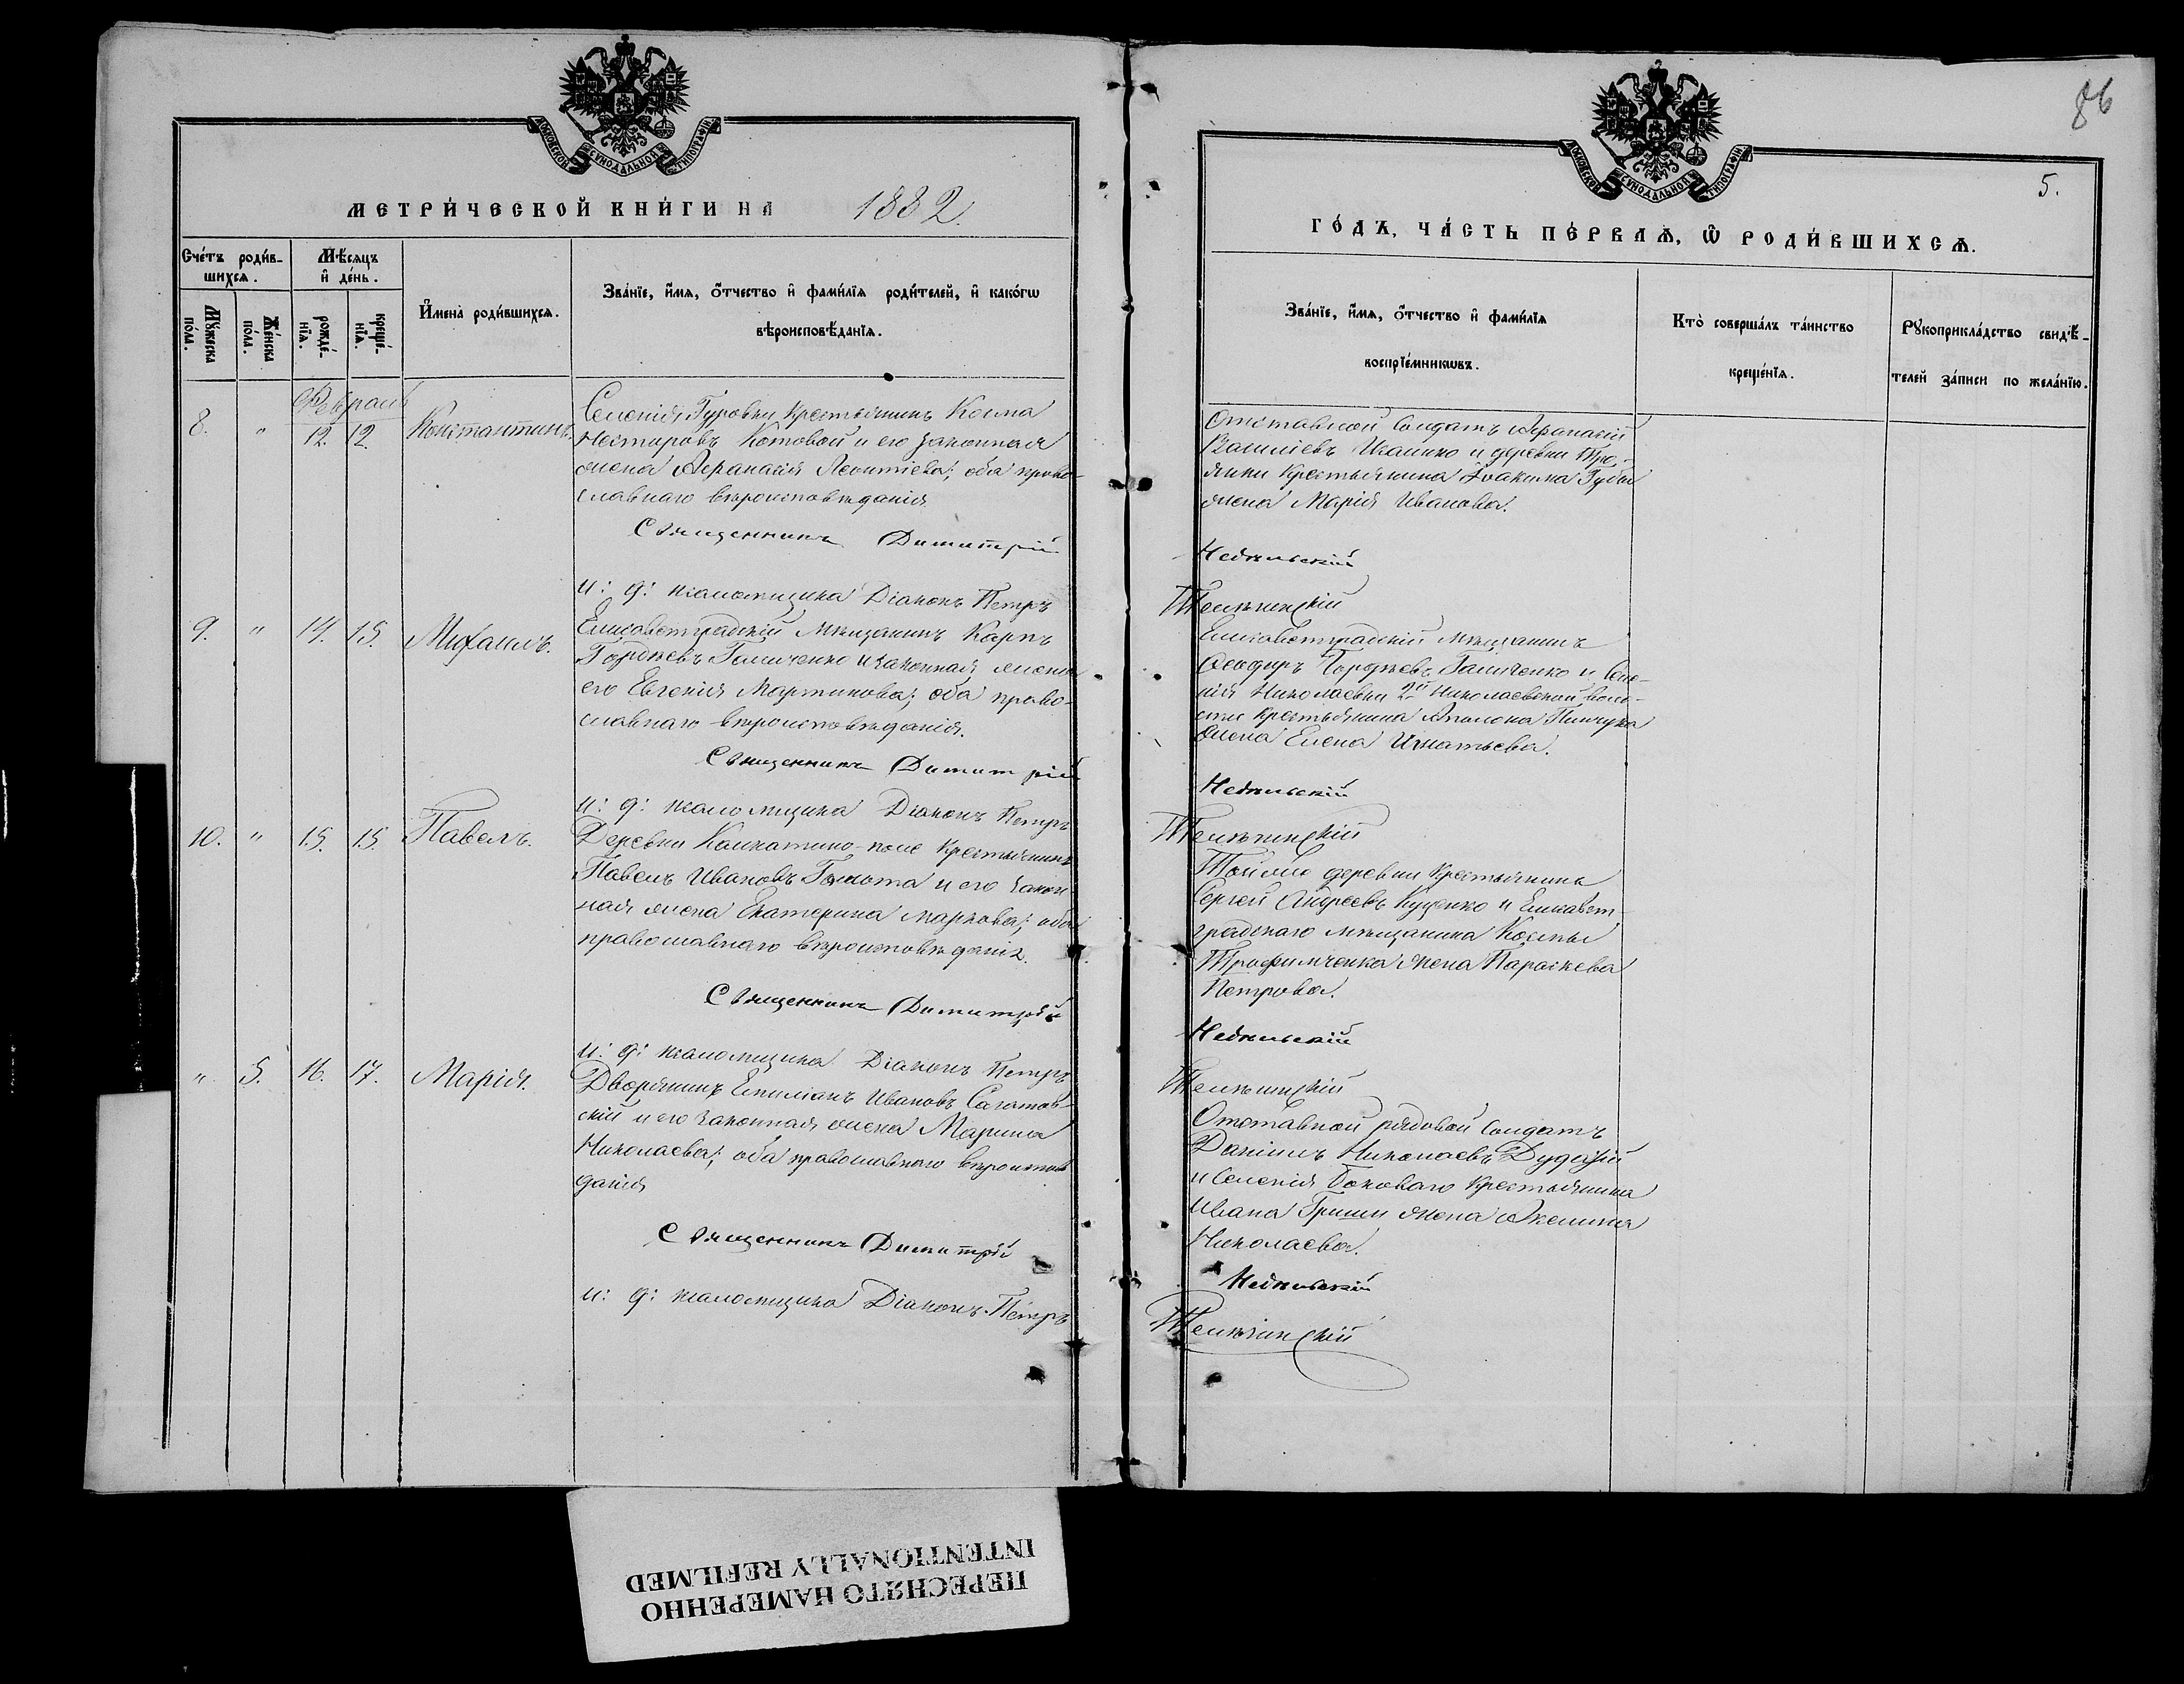 МОСКОВСКОЙ СУНОДАЛЬНОЙ ТИПОГРАФІИ
МЕТРИ́ЧЕСКОЙ КНИ́ГИ НА 1882.
Сче́тъ роди́в-
шихсѧ.
Мѣ́сяцъ
и҆ де́нь.
Мꙋ́жеска
по́ла.
Же́нска
по́ла.
рожде́-
нїѧ.
креще́-
нїѧ.
И҆мена̀ роди́вшихсѧ.
Зва́нїе, и҆́мѧ, ѻ҆́тчество и҆ фами́лїѧ роди́телей, и҆ како́гѡ
вѣроисповѣ́данїѧ.
Февраль
8. " 12. 12. Константинъ.
Селенія Гуровки крестьянинъ Косма
Несторовъ Котовой и его законная
жена Афанасія Леонтіева; оба право-
славнаго вѣроисповѣданія.
Священникъ Димитрій
и: д: псаломщика Діаконъ Петръ
9. " 14. 15. Михаилъ.
Елисаветградскій мѣщанинъ Карпъ
Гордѣевъ Галиченко и законная жена
его Евгенія Мартинова; оба право-
славнаго вѣроисповѣданія.
Священникъ Димитрій
и: д: псаломщика Діаконъ Петръ
10. " 15. 15. Павелъ.
Деревни Калкатино-поле крестьянинъ
Павелъ Ивановъ Голота и его закон-
ная жена Екатерина Маркова; оба
православнаго вѣроисповѣданія.
Священникъ Димитрій
и: д: псаломщика Діаконъ Петръ
" 5. 16. 17. Марія.
Дворянинъ Емиліанъ Ивановъ Сагатов-
скій и его законная жена Марина
Николаева; оба православнаго вѣроисповѣ
данія
Священникъ Димитрій
и: д: псаломщика Діаконъ Петръ
86
МОСКОВСКОЙ СУНОДАЛЬНОЙ ТИПОГРАФІИ
5.
ГО́ДЪ, ЧА́СТЬ ПЕ́РВАѦ, Ѡ҆ РОДИ́ВШИХСѦ.
Зва́нїе, и҆́мѧ, ѻ҆́тчество и҆ фами́лїѧ
воспрїе́мникѡвъ.
Кто̀ соверша́лъ та́инство
креще́нїѧ.
Рꙋкоприкла́дство свидѣ́-
телей за́писи по жела́нїю.
Отставной солдатъ Афанасій
Василіевъ Ивашко и деревни Тро-
янки крестьянина Іоакима Губы
жена Марія Иванова.
Недѣльскій
Телѣжинскій
Елисаветградскій мѣщанинъ
Ѳеодоръ Гордѣевъ Галиченко и Селе-
нія Николаевки 2й Николаевской воло-
сти крестьянина Аполона Пинчука
жена Елена Игнатьева.
Недѣльскій
Телѣжинскій
Той же деревни крестьянинъ
Сергей Андреевъ Куценко и Елисавет-
градскаго мѣщанина Космы
Трофимченка жена Параскева
Петрова.
Недѣльскій
Телѣжинскій
Отставной рядовой солдатъ
Даніилъ Николаевъ
и Селенія Боковаго крестьянина
Ивана Гриши жена Акелина
Николаева.
Недѣльскій
Телѣжинскій
ПЕРЕСНЯТО НАМЕРЕННО
INTENTIONALLY REFILMED